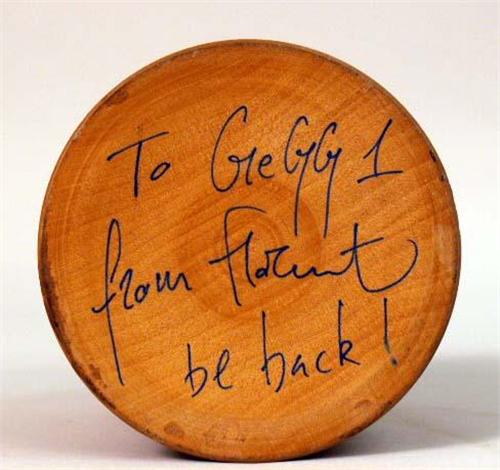 To GreGG 1
from florent
be back!